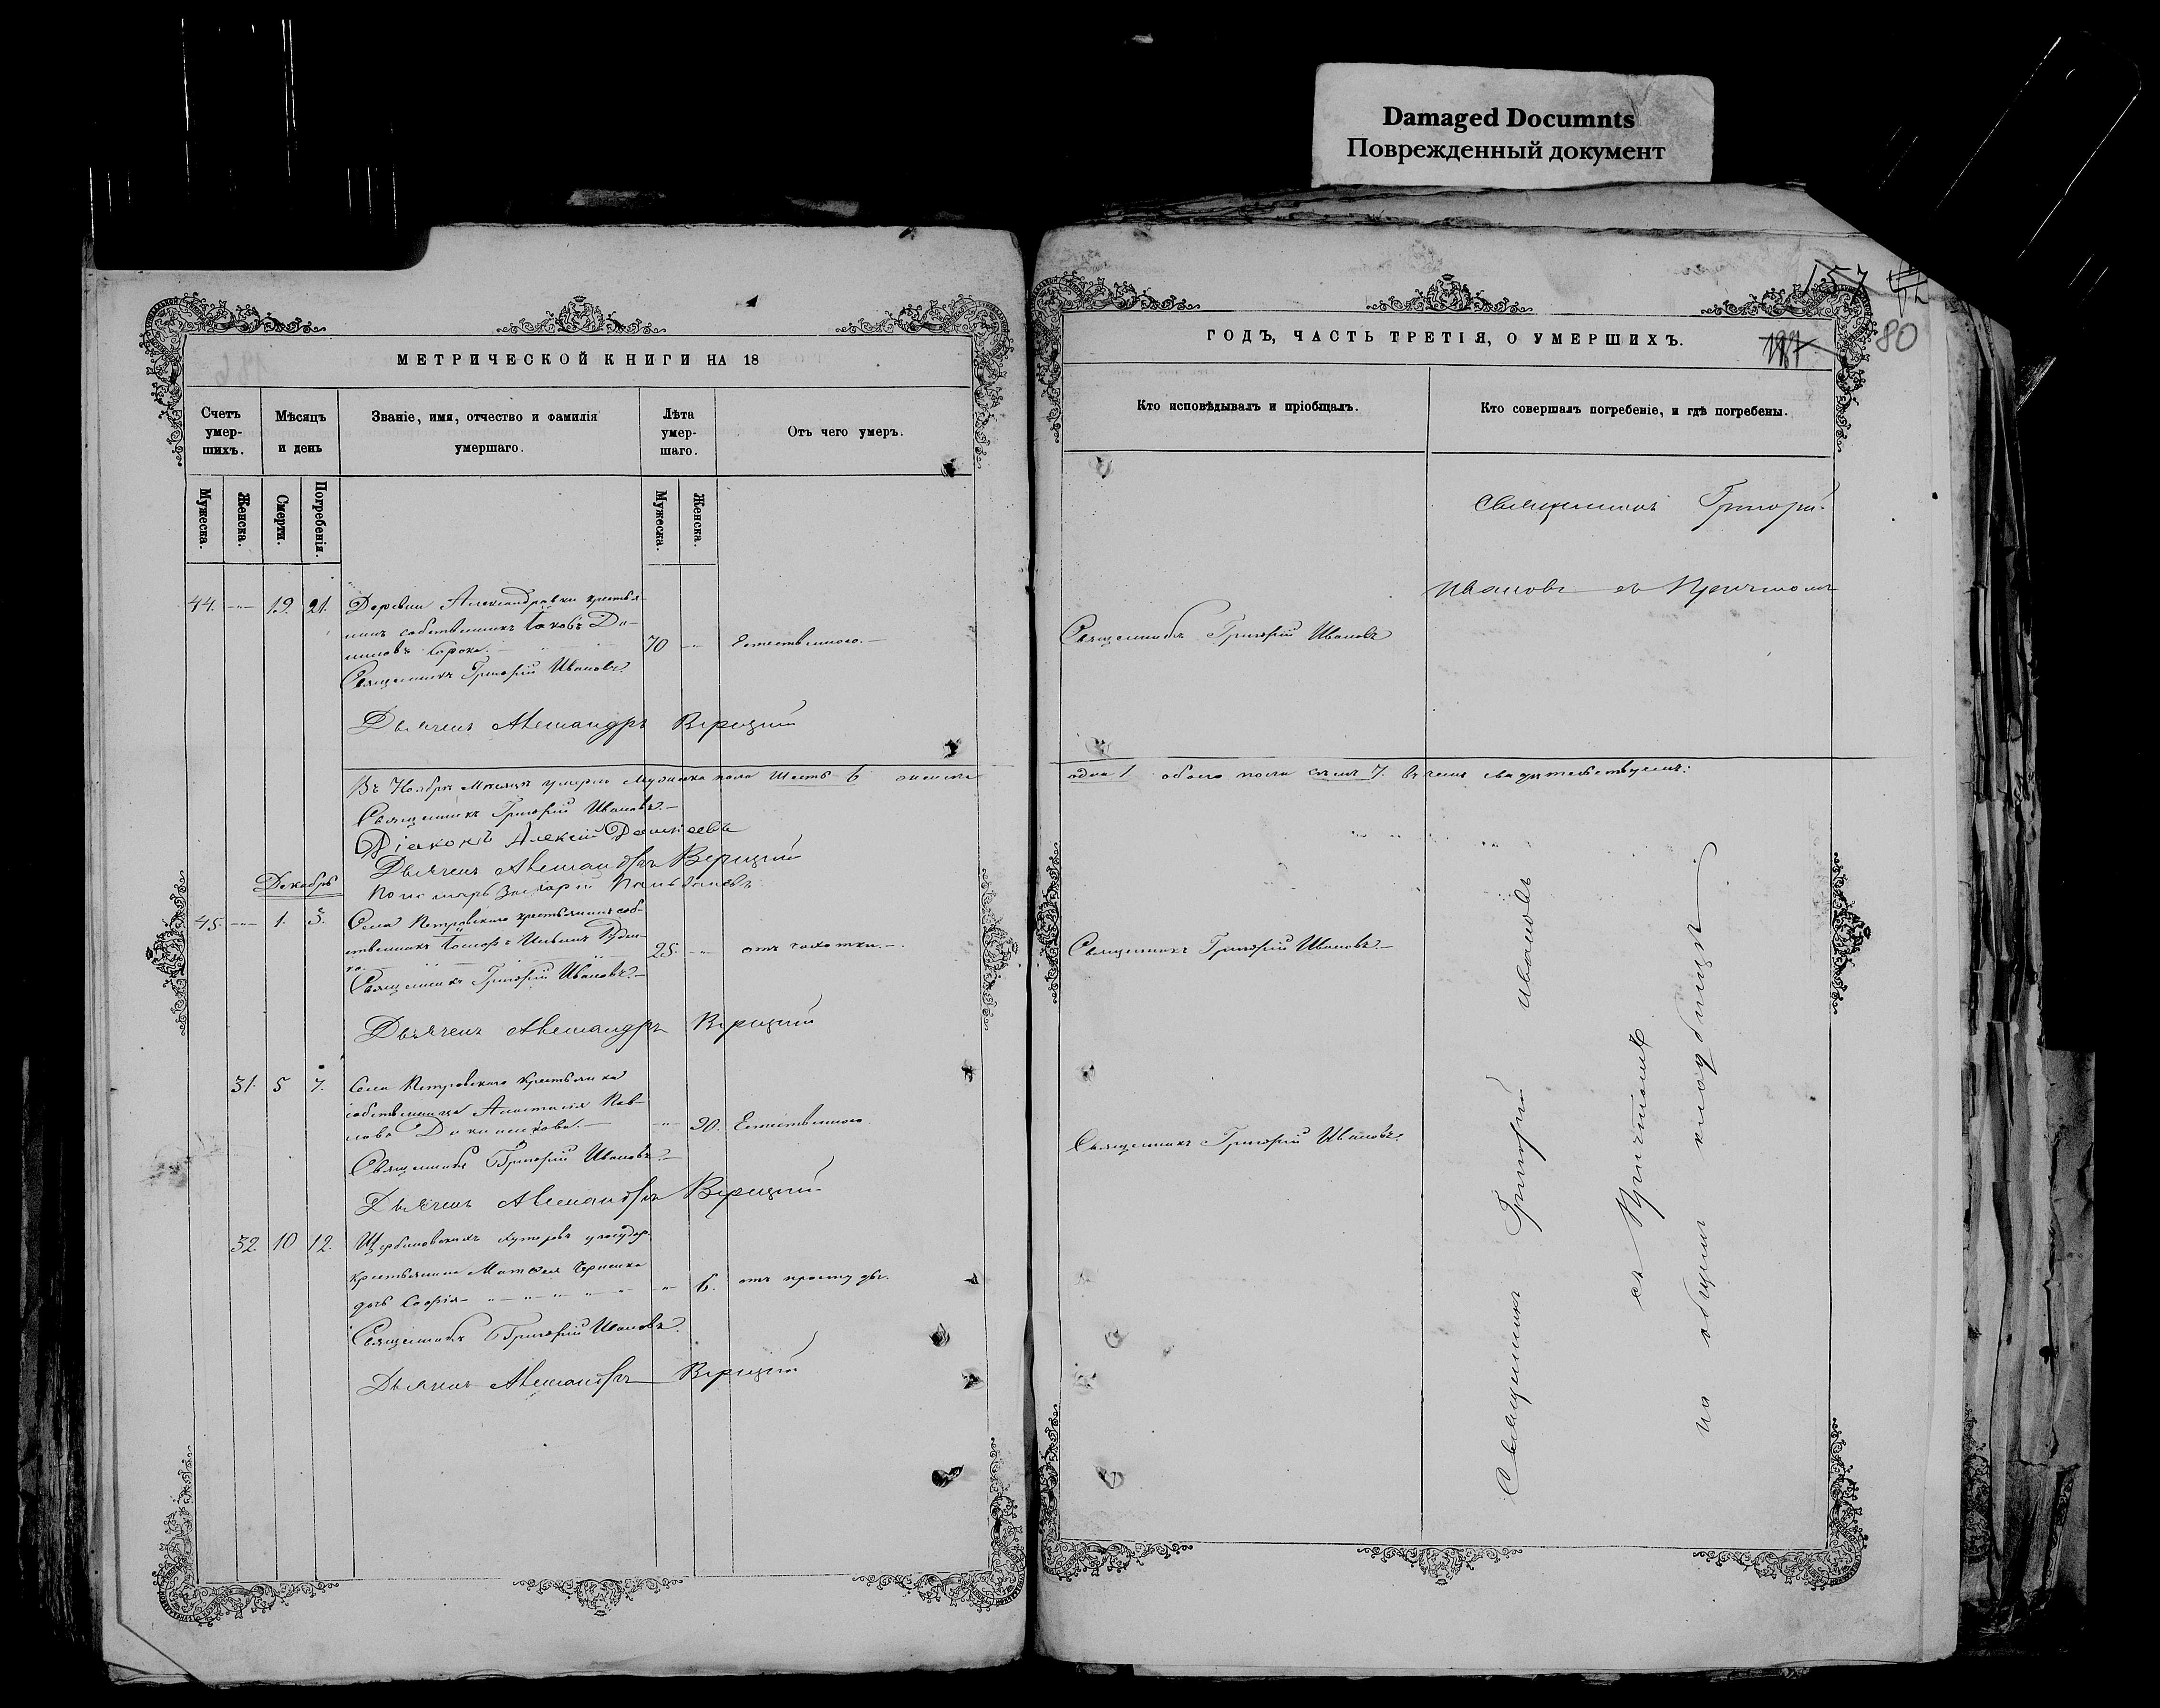 Damaged Documnts
Поврежденный документ
157
80
МЕТРИЧЕСКОЙ КНИГИ НА 18
Счетъ умер-шихъ.
Мѣсяцъ и день
Званіе, имя, отчество и фамилія умершаго.
Лѣта умер-шаго.
Отъ чего умеръ.
Мужеска.
Женска.
Смерти.
Погребенія.
Мужеска.
Женска.
44. 19. 21. Деревни Александровки крестья-
нинъ собственникъ Іаковъ Да-
ниловъ Сорока.
70 Естественного.
Священникъ Григорій Ивановъ
Дьячекъ Александръ Верицкий
Въ Ноябрѣ Месяцѣ умерло мужеска пола шесть 6 женска
Священникъ Григорій Ивановъ
Діаконъ Алексій
Дьячекъ Александръ Верицкий
Пономарь Захарій
Декабрь
45. 1. 3. Села Петровского крестьянинъ соб-
ственникъ Іосифъ Ильинъ
25. отъ чахотки.
Священникъ Григорій Ивановъ
Дьячекъ Александръ Верицкий
31. 5 7. Села Петровского крестьянка
собственница Анастасія Пав-
лова
90. Естественного
Священникъ Григорій Ивановъ
Дьячекъ Александръ Верицкий
32. 10 12. Щербиновскихъ хуторовъ
крестьянина Матвея Черненка
дочь Софія
6. отъ простуды.
Священникъ Григорій Ивановъ
Дьячекъ Александръ Верицкий
ГОДЪ, ЧАСТЬ ТРЕТІЯ, О УМЕРШИХЪ.
Кто исповѣдывалъ и пріобщалъ.
Кто совершалъ погребеніе, и гдѣ погребены.
Священникъ Григорій
Ивановъ съ Причтомъ
Священникъ Григорій Ивановъ
одна 1 обоего пола семь 7. въ чемъ свидетельствуемъ:
Священникъ Григорій Ивановъ
Священникъ Григорій Ивановъ
Священникъ Григорій Ивановъ
съ Причтомъ
на общемъ кладбищѣ